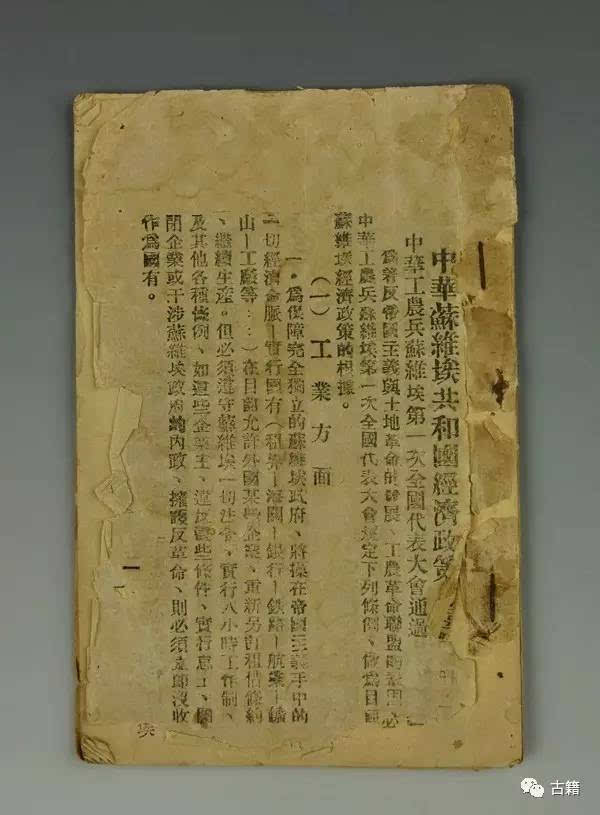 中華蘇維埃共和國經濟政策
中華工農兵蘇維埃第一次全國代表大會通過
爲着反帝國主義與土地革命的發展、工農革命聯盟的鞏固、
中華工農兵蘇維埃第一次全國代表大會規定下列條例、作爲目前
蘇維埃經濟政策的根據。
(一)工業方面
一•爲保障完全獨立的蘇維埃政府、將操在帝國主義手中的
一切經濟命脈—實行國有(租界—海關—銀行—鉄路—航業—鑛
山—工廠等……)在目前允許外國某些企業、重新另訂租借條約
、繼續生產。但必須遵守蘇維埃一切法令、實行八小時工作制、
及其他各種條例、如這些企業主、違反這些條件、實行怠工、關
閉企業或干涉蘇維埃政府的內政、擁護反革命、則必須立卽沒收
作爲國有。
一
埃
古籍